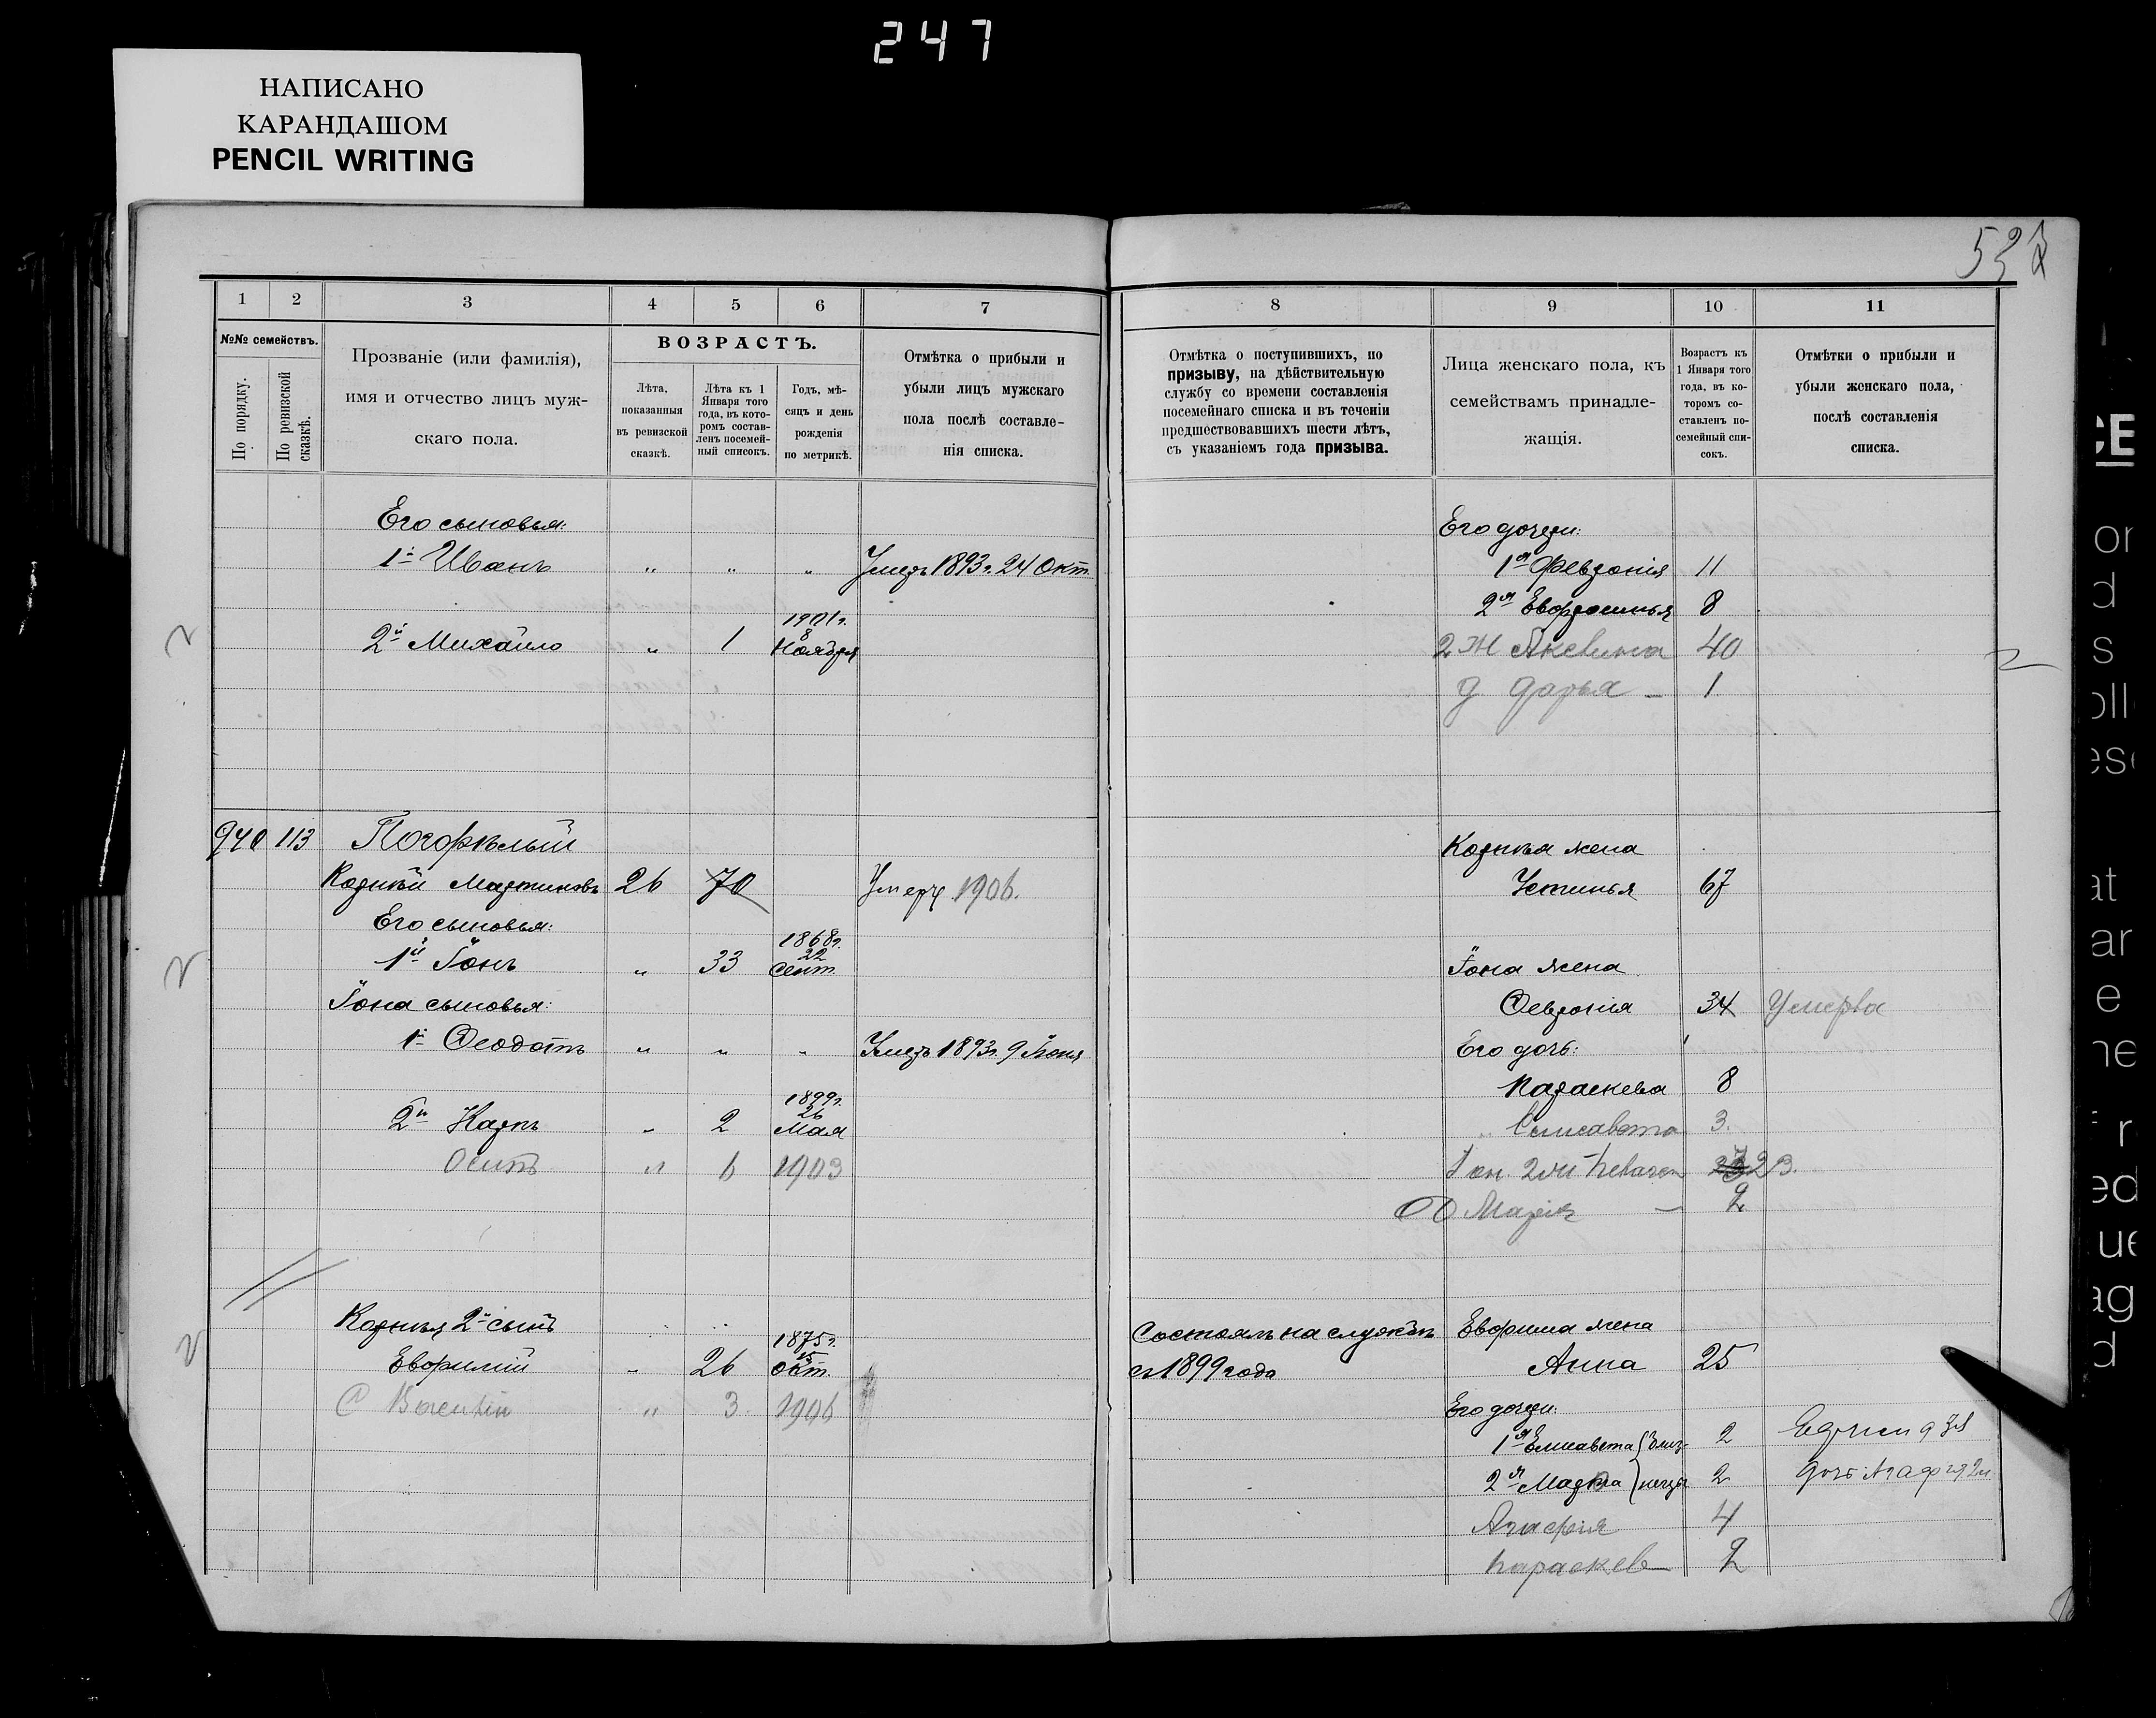 247
НАПИСАНО
КАРАНДАШОМ
PENCIL WRITING
1 2 3 4 5 6 7
№№ семействъ.
По порядку.
По ревизской сказкѣ.
Прозваніе (или фамилія),
имя и отчество лицъ муж-
скаго пола.
ВОЗРАСТЪ.
Лѣта,
показанныя
въ ревизской
сказкѣ.
Лѣта къ 1
Января того
года, въ кото-
ромъ состав-
ленъ посемей-
ный списокъ.
Годъ, мѣ-
сяцъ и день
рожденія
по метрикѣ.
Отмѣтка о прибыли и
убыли лицъ мужскаго
пола послѣ составле-
нія списка.
Его сыновья:
1й Иванъ " " " Умеръ 1893 г. 24 Окт.
1901 г.
8
2й Михаило " 1 Ноября
940 113 Погорѣлый
Корнѣй Мартиновъ 26 70 Умеръ 1906.
Его сыновья:
1868 г.
22
1й Іонъ " 33 Сент.
Іона сыновья:
1й Ѳеодотъ " " " Умеръ 1893 г. 9 Іюня
1899 г.
26
2й Карпъ " 2 Мая
Осипъ " 6 1903
Корнѣя 2й сынъ
1875 г.
15
Евфимій " 26 Окт.
" 3 1906
8 9 10 11
Отмѣтка о поступившихъ, по
призыву, на дѣйствительную
службу со времени составленія
посемейнаго списка и въ теченіи
предшествовавшихъ шести лѣтъ,
съ указаніемъ года призыва.
Лица женскаго пола, къ
семействамъ принадле-
жащія.
Возрастъ къ
1 Января того
года, въ ко-
торомъ со-
ставленъ по-
семейный спи-
сокъ.
Отмѣтки о прибыли и
убыли женскаго пола,
послѣ составленія
списка.
Его дочери:
1я Февронія 11
2я Евфросинья 8
2 Ж Акелина 40
д Дарья – 1
Корнѣя жена
Устинья 67
Іона жена
Ѳевронія 34 Умерла
Его дочь:
Параскева 8
" Елисавета 3.
Марія – 2
Состоялъ на службѣ Евфима жена
съ 1899 года Анна 25
Его дочери:
1я Елисавета { близ- 2
2я Марѳа { нецы 2 дочь Агафія 2 л
Агафія 4
Параскев 2